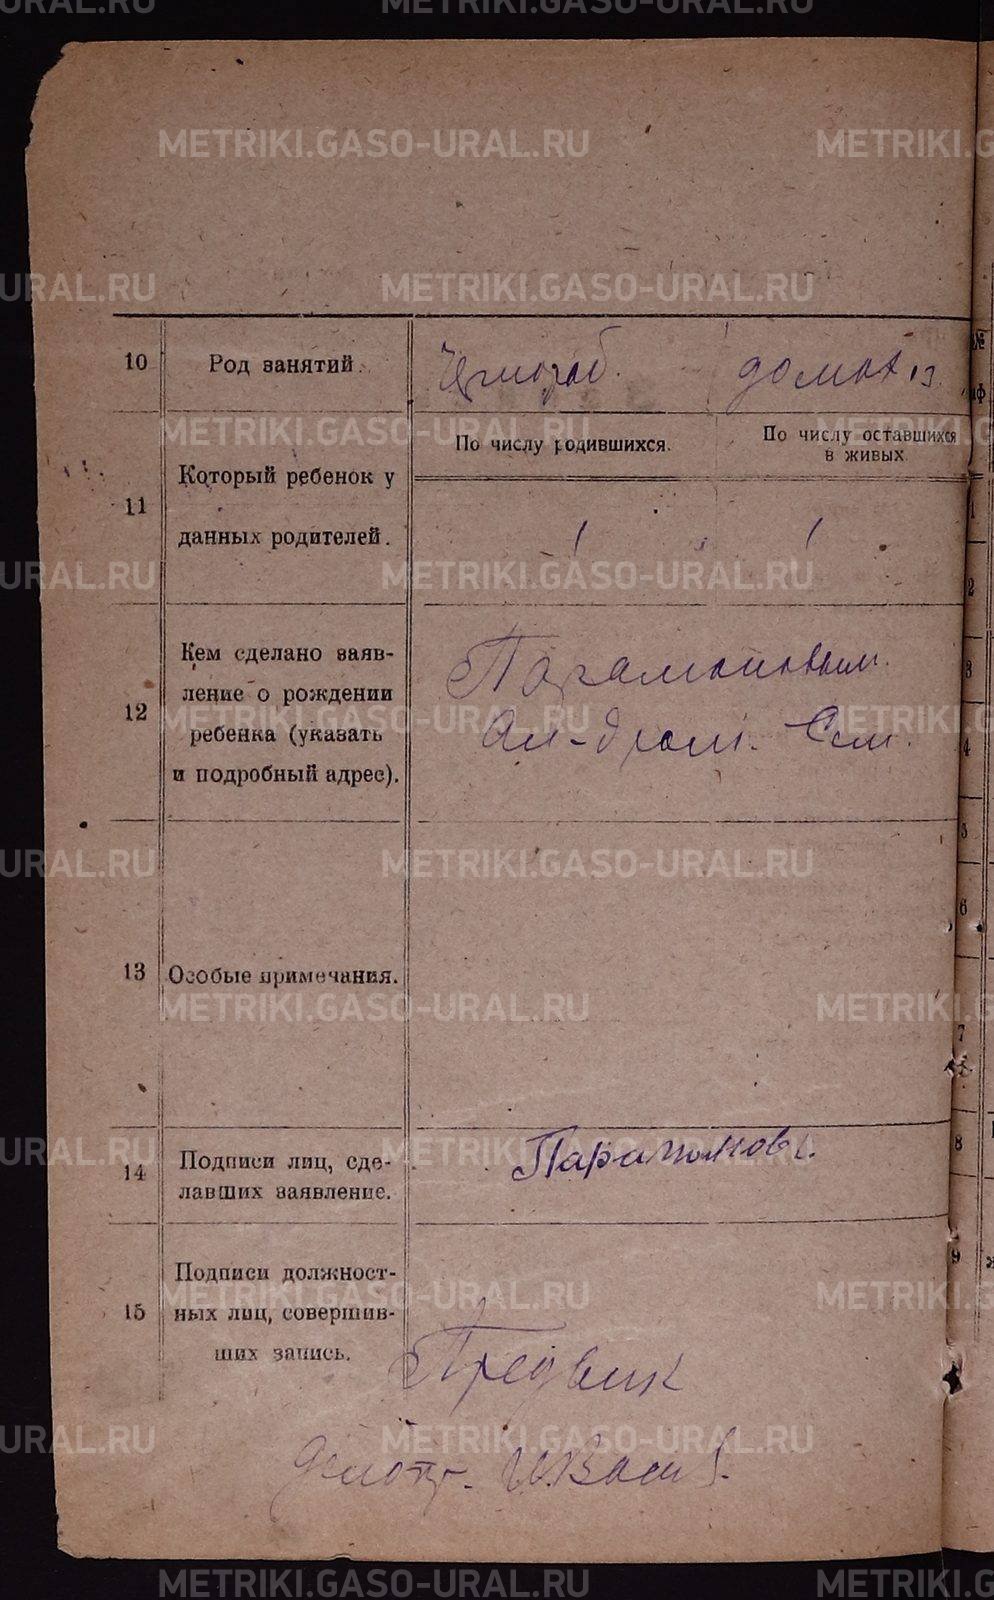 METRIKI.GASO-URAL.RU
10
Род занятий.
Чернораб.
домохоз
11
Который ребенок у
данных родителей.
По числу родившихся.
По числу оставшихся
в живых.
1
1
12
Кем сделано заяв-
ление о рождении
ребенка (указать
и подробный адрес).
Парамоновым.
Сем.
13
Особые примечания.
14
Подписи лиц, сде-
лавших заявление.
Парамонов
15
Подписи должност-
ных лиц, совершив-
ших запись.
Предвик
Делопр.